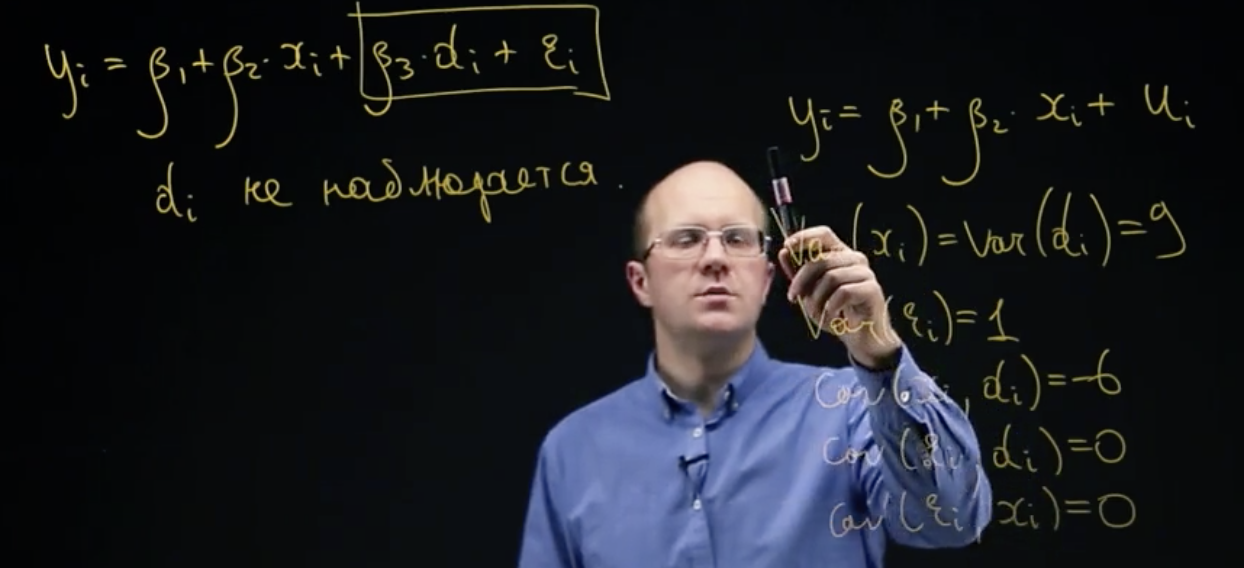 yᵢ = β₁ + β₂·xᵢ + β₃·dᵢ + εᵢ
dᵢ не наблюдается.
yᵢ = β₁ + β₂·xᵢ + uᵢ
Var(xᵢ) = Var(dᵢ) = 9
Var(εᵢ) = 1
Cov(xᵢ, dᵢ) = -6
Cov(εᵢ, dᵢ) = 0
Cov(εᵢ, xᵢ) = 0